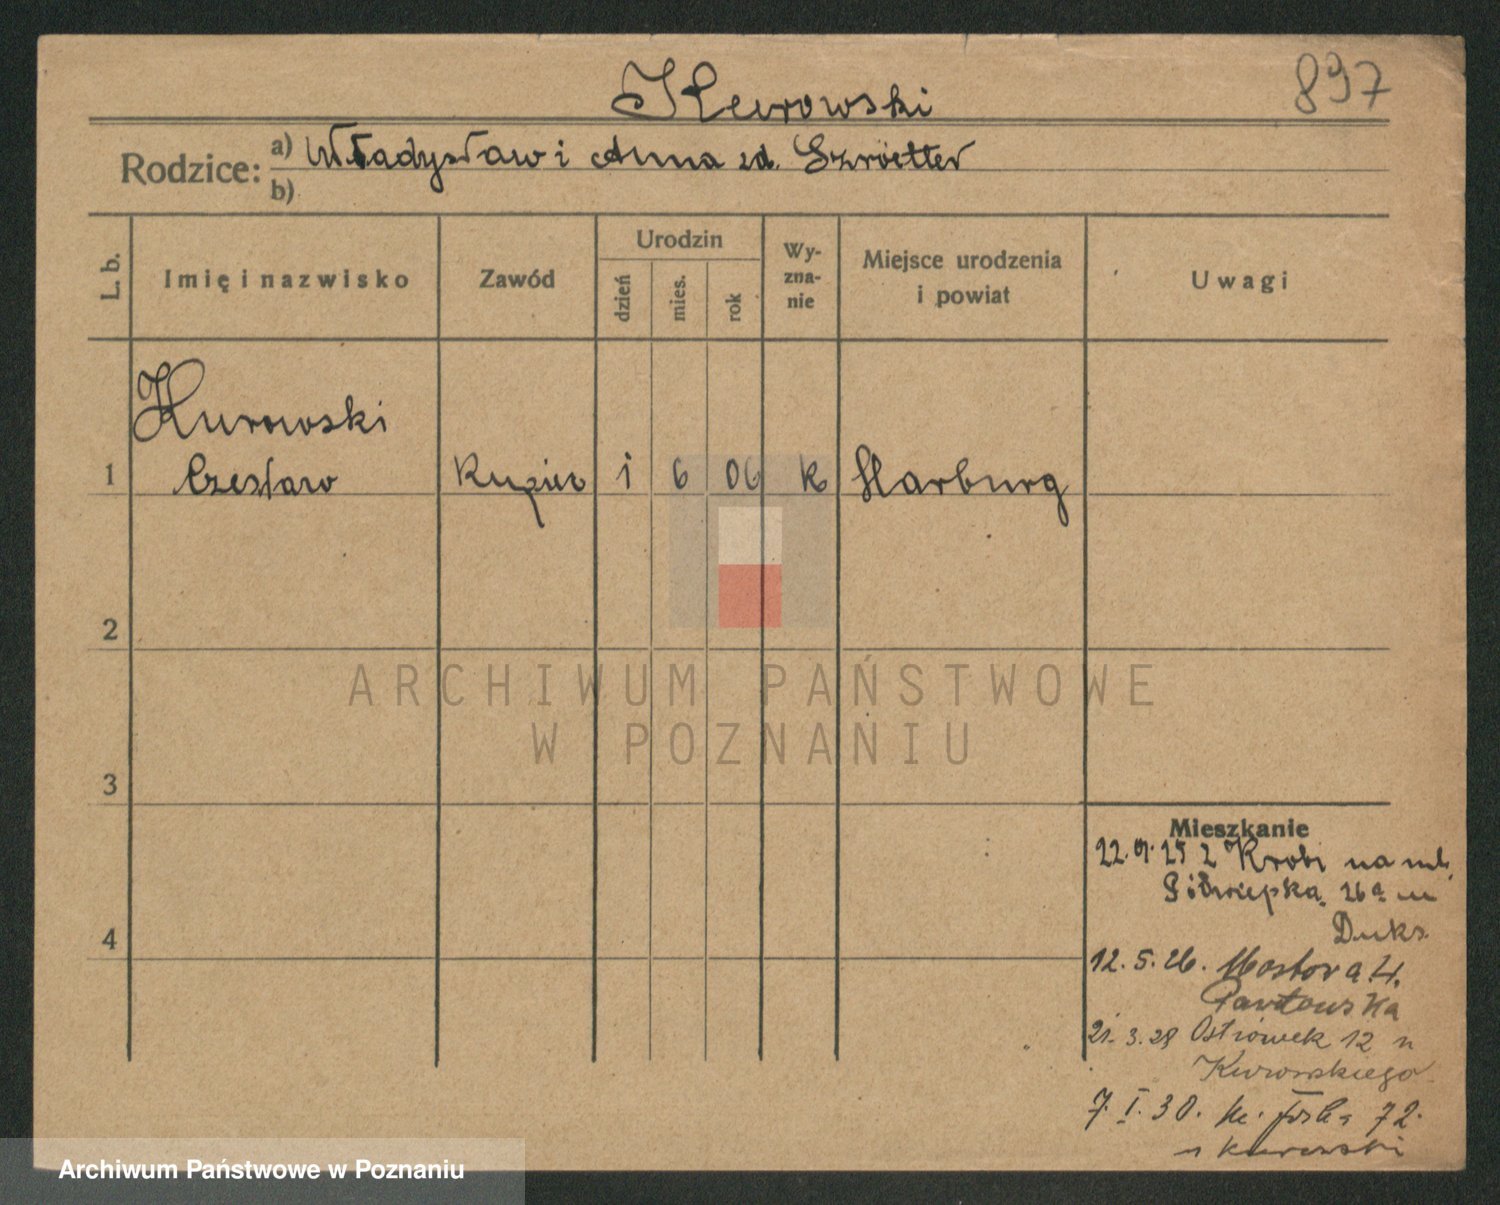 897
Kurowski
Rodzice: a) Władysław i Anna zd. Szroetter
b)
L. b. Imię i nazwisko Zawód Urodzin dzień mies. rok Wyznanie Miejsce urodzenia i powiat Uwagi
Kurowski
1 Czesław Kupiec 1 6 06 k Harburg
2
3
4
ARCHIWUM PAŃSTWOWE
W POZNANIU
Mieszkanie
22. 9. 25 z Krobi na
Półwiejska 26a u
Duks.
12. 5. 26. Mostowa 4.
Pawłowska
21. 3. 28 Ostrówek 12 u
Kurowskiego
7. I. 30. 72.
u Kurowski
Archiwum Państwowe w Poznaniu